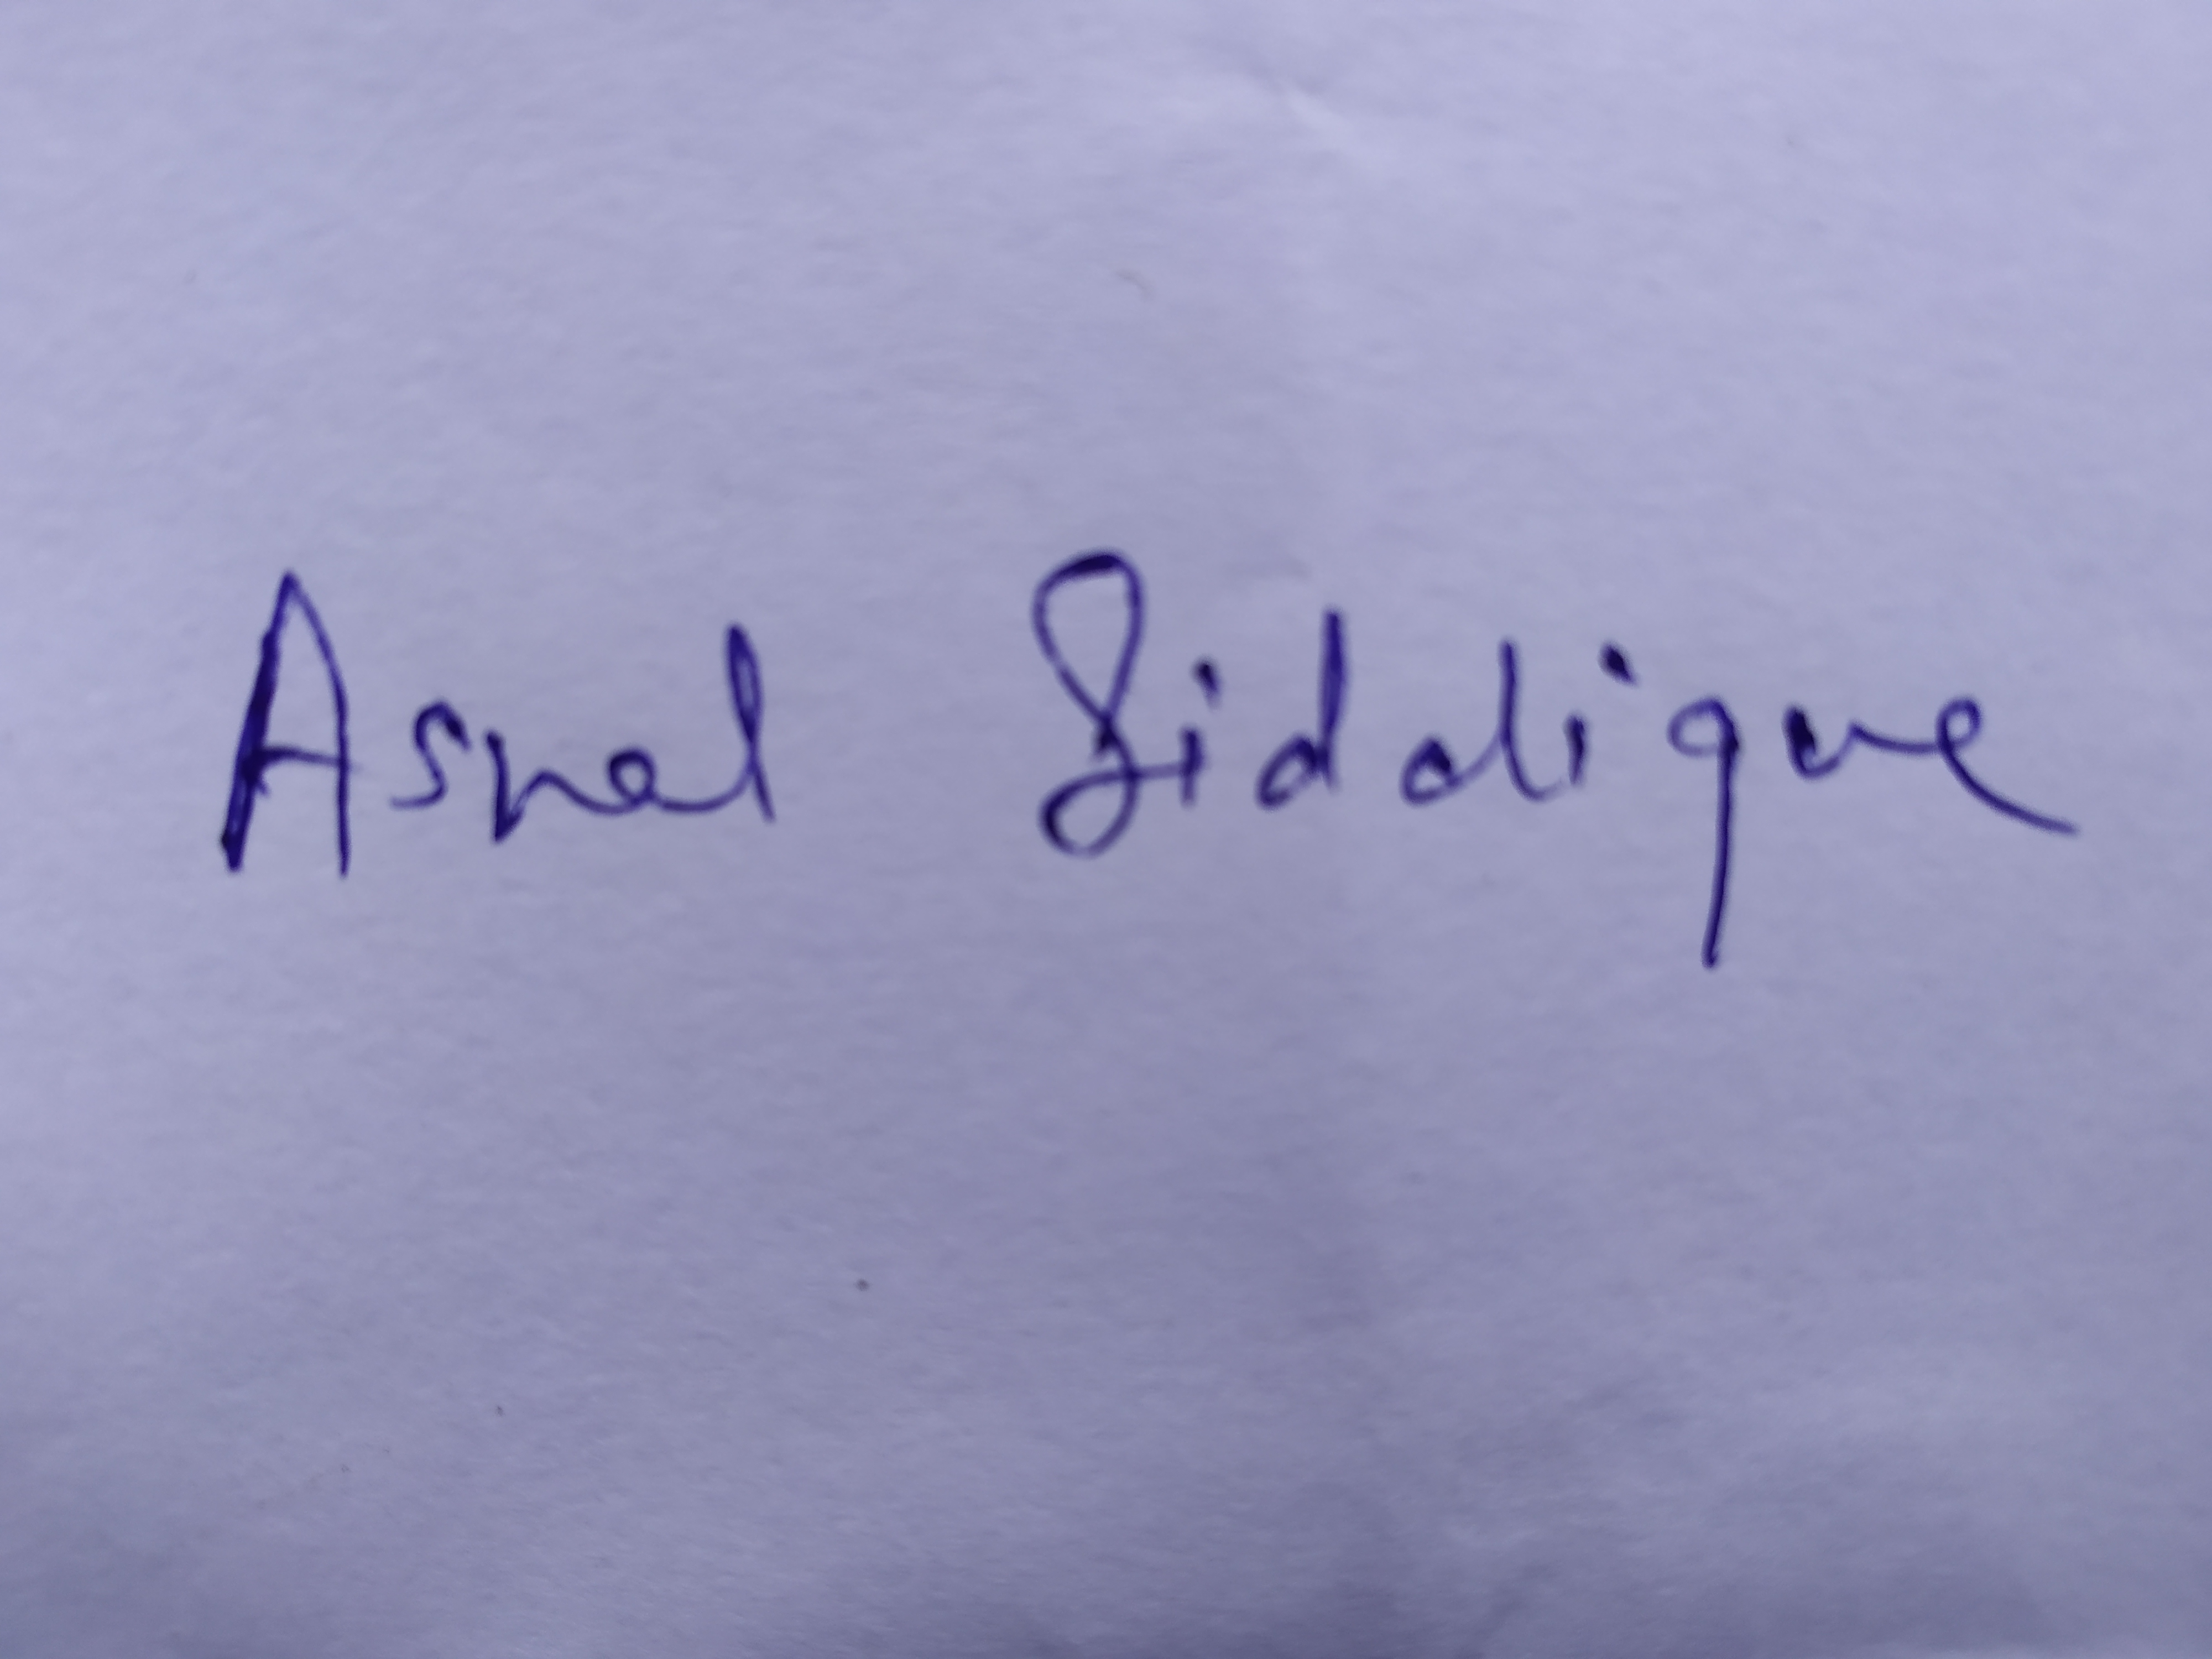 Asnal Siddique